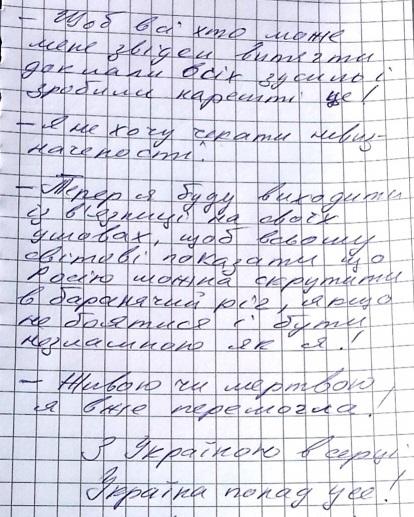 - Щоб всі хто може
мене звідси витягти
доклали всіх зусиль і
зробили нарешті це!
- Я не хочу чекати невиз-
наченості.
- Тепер я буду виходити
із в'язниці на своїх
умовах, щоб всьому
світові показати що
Росію можна скрутити
в баранячий ріг, якщо
не боятися і бути
незламною як я!
- Живою чи мертвою
я вже перемогла!
З Україною в серці
Україна понад усе!